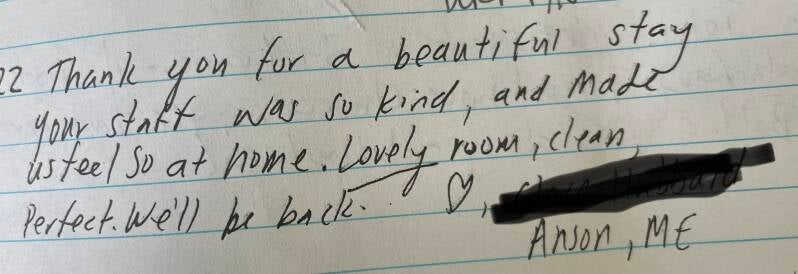 22 Thank you for a beautiful stay
your staff was so kind, and made
us feel so at home. Lovely room, clean,
Perfect. We'll be back. ♡,
Anson, ME